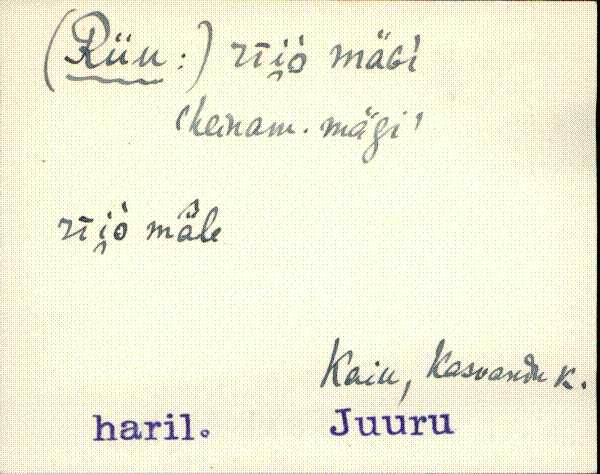 (Riiu:) rījò mäǵi
'heinam. mägi'
rījò mäle
Kaiu, Kasvandu k.
haril. Juuru